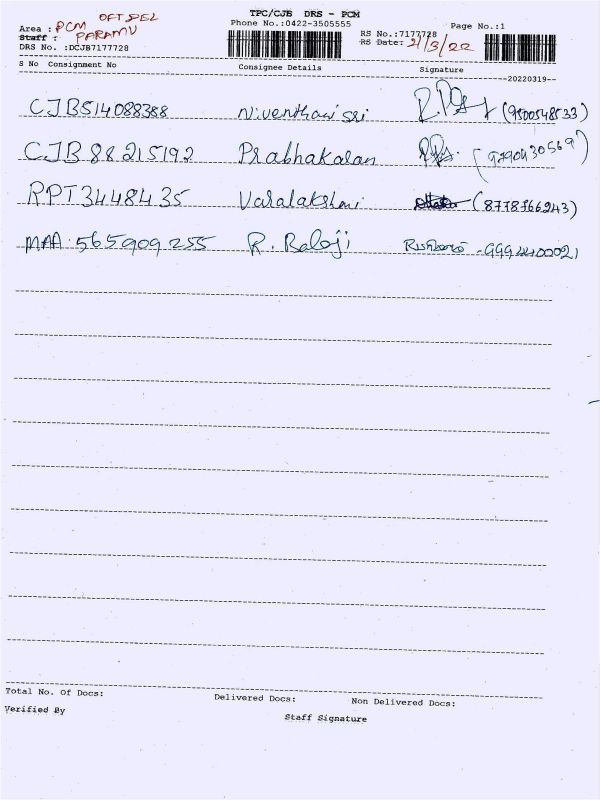 TPC/CJB DRS - PCM
Phone No.:0422-3505555
Page No.:1
Area : PCM OFTSPEL
Staff : PARAMU
DRS No. :DCJB7177728
RS No.:7177728
RS Date: 21/3/22
S No Consignment No Consignee Details Signature
--20220319--
CJB514088388 Niventhani sri (9500548533)
CJB 88215192 Prabhakalan
RPT3448435 Varalakshmi (8778766243)
MAA:565909255 R. Baloji -9994400021
Total No. Of Docs: Delivered Docs: Non Delivered Docs:
Verified By Staff Signature